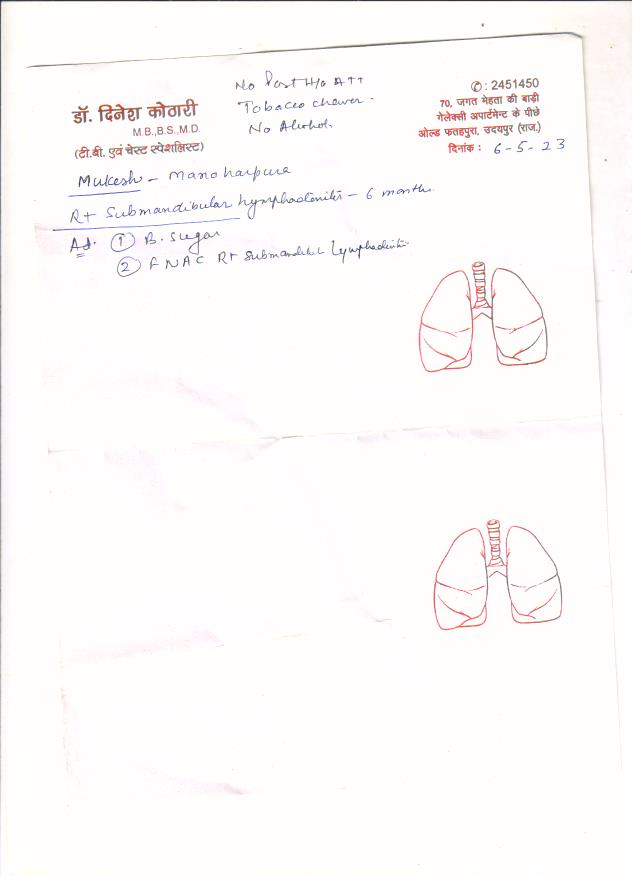 डॉ. दिनेश कोठारी
M.B.,B.S.,M.D.
(टी.बी. एवं चेस्ट स्पेशलिस्ट)
No Past H/o ATT
Tobacco chewer.
No Alcohol.
✆ : 2451450
70, जगत मेहता की बाड़ी
गेलेक्सी अपार्टमेन्ट के पीछे
ओल्ड फतहपुरा, उदयपुर (राज.)
दिनांक : 6-5-23
Mukesh - Manoharpura
Rt Submandibular lymphadenitis - 6 months.
Ad. ① B. Sugar
② FNAC Rt Submandibul Lymphadenitis